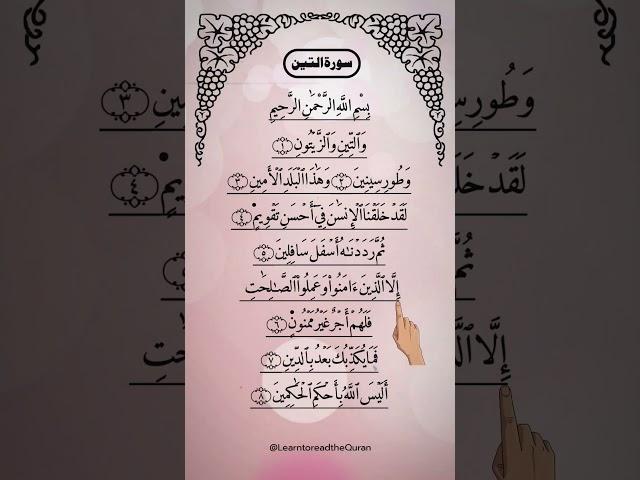 سورة التين
بِسْمِ اللَّهِ الرَّحْمَٰنِ الرَّحِيمِ
وَٱلتِّينِ وَٱلزَّيْتُونِ ١
وَطُورِ سِينِينَ ٢ وَهَٰذَا ٱلْبَلَدِ ٱلْأَمِينِ ٣
لَقَدْ خَلَقْنَا ٱلْإِنسَٰنَ فِىٓ أَحْسَنِ تَقْوِيمٍ ٤
ثُمَّ رَدَدْنَٰهُ أَسْفَلَ سَافِلِينَ ٥
إِلَّا ٱلَّذِينَ ءَامَنُوا۟ وَعَمِلُوا۟ ٱلصَّٰلِحَٰتِ
فَلَهُمْ أَجْرٌ غَيْرُ مَمْنُونٍ ٦
فَمَا يُكَذِّبُكَ بَعْدُ بِٱلدِّينِ ٧
أَلَيْسَ ٱللَّهُ بِأَحْكَمِ ٱلْحَٰكِمِينَ ٨
@LearntoreadtheQuran